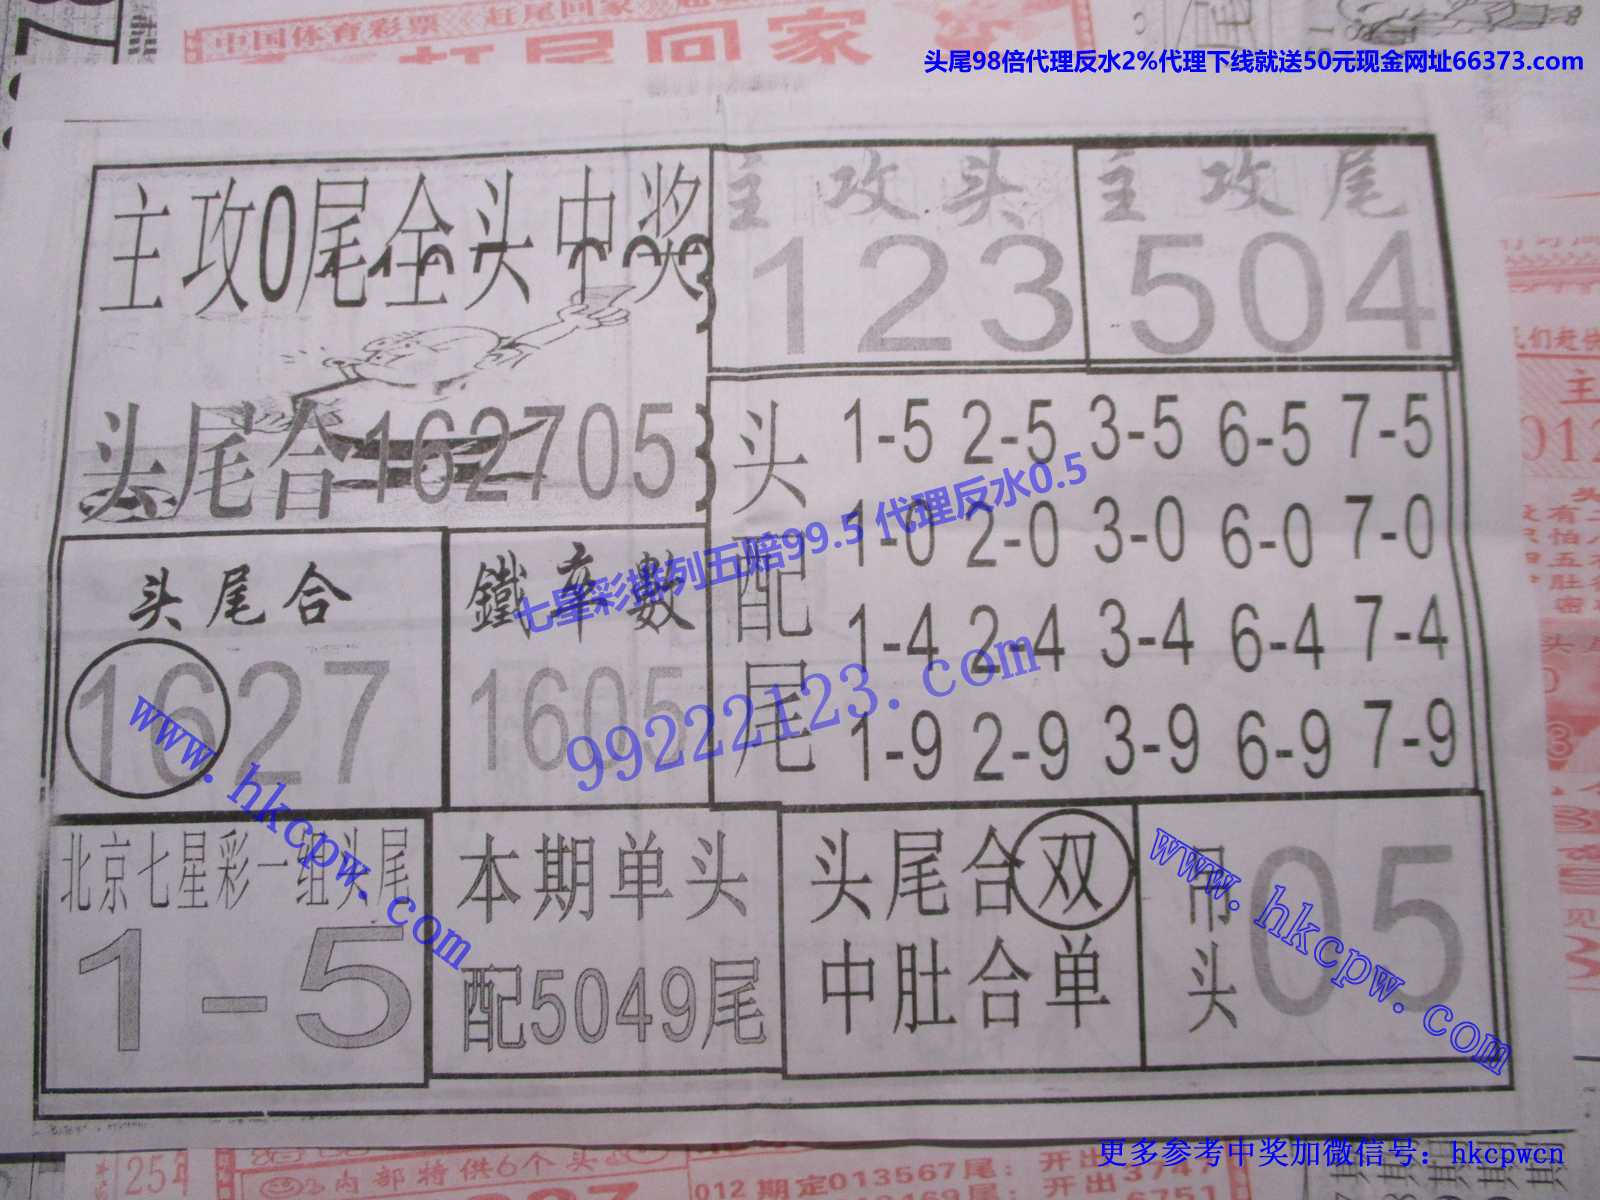 中国体育彩票
赶尾回家
头尾98倍代理反水2%代理下线就送50元现金网址66373.com
主攻0尾全头中奖
主攻头
123
主攻尾
504
头尾合162705
头配尾
1-5 2-5 3-5 6-5 7-5
1-0 2-0 3-0 6-0 7-0
1-4 2-4 3-4 6-4 7-4
1-9 2-9 3-9 6-9 7-9
七星彩排列五赔99.5 代理反水0.5
99222123.com
头尾合
1627
鐵率數
1605
www.hkcpw.com
北京七星彩一组头尾
1-5
本期单头
配5049尾
头尾合双
中肚合单
吊头
05
www.hkcpw.com
更多参考中奖加微信号：hkcpwcn
内部特供6个头
012期定013567尾：开出3747
6751